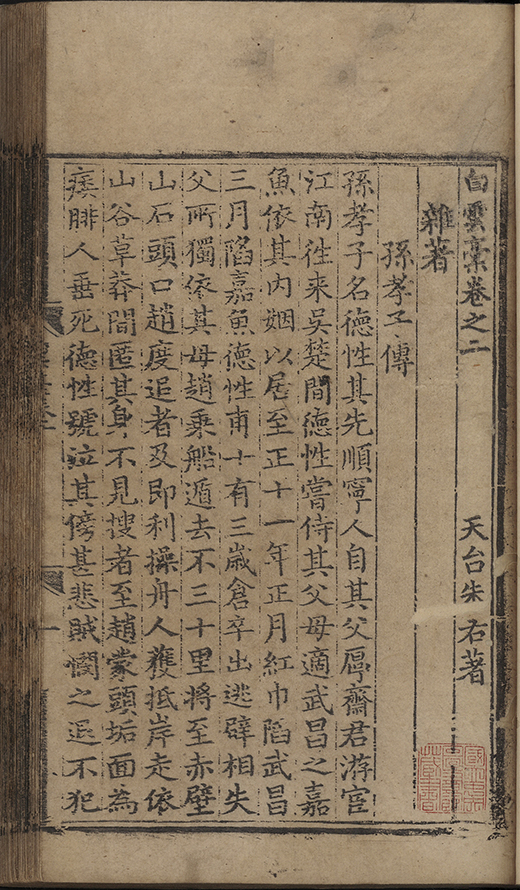 白雲稾卷之二
天台朱右著
雜著
孫孝子傳
孫孝子名德性其先順寧人自其父厚齋君游宦
江南往来吳楚間德性嘗侍其父母適武昌之嘉
魚依其内姻以居至正十一年正月紅巾陷武昌
三月陷嘉魚德性甫十有三歲倉卒出逃辟相失
父所獨依其母趙乗船遁去不三十里將至赤壁
山石頭口趙度追者及即利操舟人獲抵岸走依
山谷草莽間匿其身不見搜者至趙蒙頭垢面為
瘼腓人垂死德性號泣其傍甚悲賊憫之退不犯